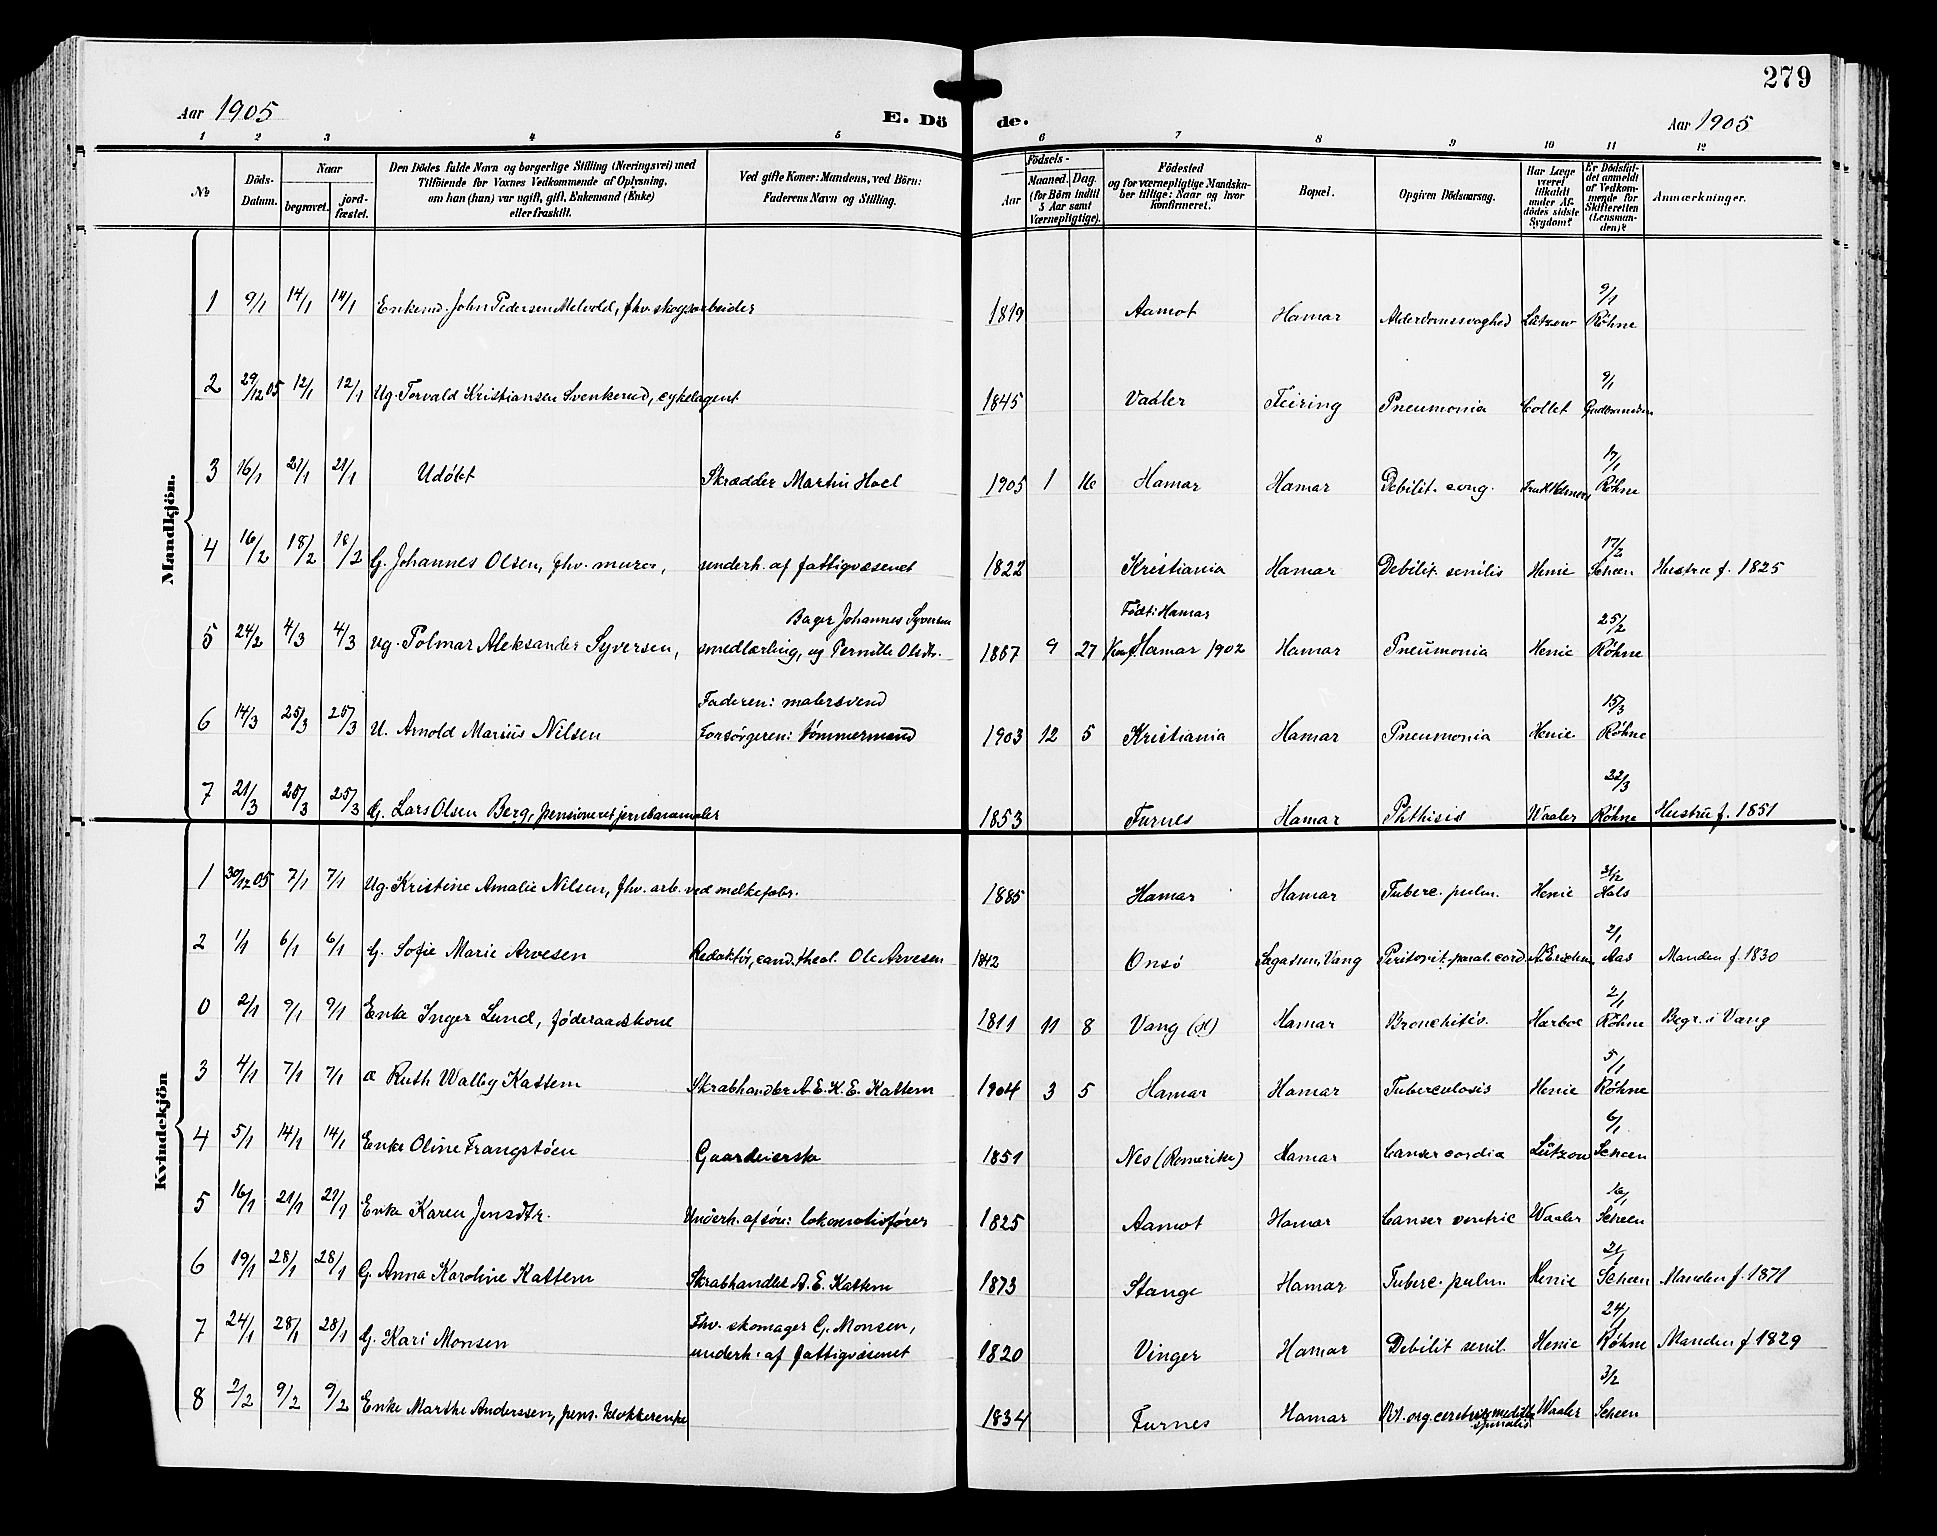 279
Aar 1905
E. Dö de.
Aar 1905
1 2 3 4 5 6 7 8 9 10 11 12
№
Döds-
Datum.
Naar
begravet.
jord-
fæstet.
Den Dödes fulde Navn og borgerlige Stilling (Næringsvei) med
Tilföiende for Voxnes Vedkommende af Oplysning,
om han (hun) var ugift, gift, Enkemand (Enke)
eller fraskilt.
Ved gifte Koner: Mandens, ved Börn:
Faderens Navn og Stilling.
Födsels-
Aar
Maaned. Dag.
(for Börn indtil
5 Aar samt
Værnepligtige).
Födested
og for værnepligtige Mandska-
ber tillige: Naar og hvor
konfirmeret.
Bopæl.
Opgiven Dödsaarsag.
Har Læge
været
tilkaldt
under Af-
dödes sidste
Sygdom?
Er Dödsfal-
det anmeldt
af Vedkom-
mende for
Skifteretten
(Lensman-
den)?
Anmærkninger.
Mandkjön.
1 9/1 14/1 14/1 Enkemd. John Pedersen Melvold, fhv. skogsarbeider 1819 Aamot Hamar Alderdomssvaghed Lützow 9/1 Röhne
2 29/12 05 12/1 12/1 Ug. Torvald Kristiansen Svenkerud, cykelagent 1845 Vaaler Feiring Pneumonia Collet 9/1
3 16/1 21/1 21/1 Udöbt Skrædder Martin Hoel 1905 1 16 Hamar Hamar Debilit. cong. 17/1 Röhne
4 16/2 18/2 18/2 G. Johannes Olsen, fhv. murer, underh. af fattigvæsenet 1822 Kristiania Hamar Debilit. senilis Henie 17/2 Scheen Hustru f. 1825
Bager Johannes Syversen Födt: Hamar
5 24/2 4/3 4/3 Ug. Polmar Aleksander Syversen, smedlærling, og Pernille Olsdtr. 1887 9 27 Konf. Hamar 1902 Hamar Pneumonia Henie 25/2 Röhne
Faderen: malersvend
6 14/3 25/3 25/3 U. Arnold Marius Nilsen Forsörgeren: tömmermand 1903 12 5 Kristiania Hamar Pneumonia Henie 15/3 Röhne
7 21/3 25/3 25/3 G. Lars Olsen Berg, pensioneret jernbanemaler 1853 Furnes Hamar Phthisis Waaler 22/3 Röhne Hustru f. 1851
Kvindekjön
1 30/12 05 7/1 7/1 Ug. Kristine Amalie Nilsen, fhv. arb. ved melkefabr. 1885 Hamar Hamar Tuberc. pulm. Henie 31/12 Hals
2 1/1 6/1 6/1 G. Sofie Marie Arvesen Redaktör, cand. theol. Ole Arvesen 1842 Onsö Sagatun, Vang Peritonit. paral. cord. 2/1 Aas Manden f. 1830
0 2/1 9/1 9/1 Enke Inger Lund, föderaadskone 1811 11 8 Vang (H) Hamar Bronchitis. Harboe 2/1 Röhne Begr. i Vang
3 4/1 7/1 7/1 æ Ruth Walby Kattem Skrabhandler A. E. K. E. Kattem 1904 3 5 Hamar Hamar Tuberculosis Henie 5/1 Röhne
4 5/1 14/1 14/1 Enke Oline Frangstöen Gaardeierske 1851 Nes (Romerike) Hamar Canser cordia Lützow 6/1 Scheen
5 16/1 21/1 21/1 Enke Karen Jensdtr. Underh. af sön: lokomotivförer 1825 Aamot Hamar Canser ventric Waaler 16/1 Scheen
6 19/1 28/1 28/1 G. Anna Karoline Kattem Skrabhandler A. E. Kattem 1873 Stange Hamar Tuberc. pulm. Henie 21/1 Scheen Manden f. 1871
Fhv. skomager G. Monsen,
7 24/1 28/1 28/1 G. Kari Monsen underh. af fattigvæsenet 1820 Vinger Hamar Debilit senil. Henie 24/1 Röhne Manden f 1829
8 2/2 9/2 9/2 Enke Marthe Anderssen, pens. klokkerenke 1834 Furnes Hamar Vit. org. cerebri et medulla spinalis Waaler 3/2 Scheen